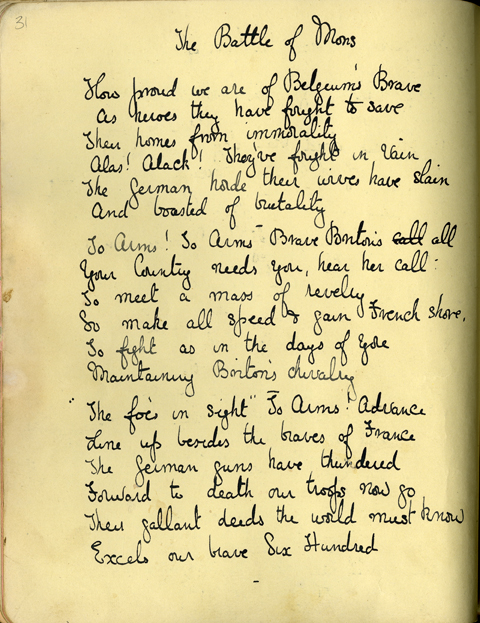 31
The Battle of Mons
How proud we are of Belgium's Brave
As heroes they have fought to save
Their homes from immorality
Alas! Alack! They've fought in Vain
The German horde their wives have Slain
And boasted of brutality
To Arms! To Arms - Brave Britons call all
Your Country needs you, hear her call:
To meet a mass of revelry
So make all speed & gain French Shore,
To fight as in the days of Yore
Maintaining Briton's chivalry
"The foe's in sight" To Arms! Advance
Line up besides the braves of France
The German guns have thundered
Forward to death our troops now go
Their gallant deeds the world must know
Excels our brave Six Hundred